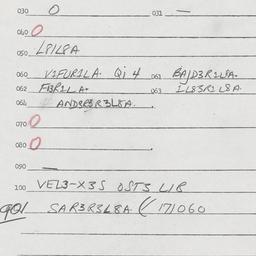 030 O 031 —
040 O
050 LPILPA
060 V1FUR1LA. Qi 4 061 BAJD3R1LPA.
062 F1BR1LA. 063 ILS3R1LPA.
064 ANDSR3R3LPA.
070 O
080 O
090 —
100 VEL3-X3S OST3 LIR
901 SAR3R3LPA ( 171060